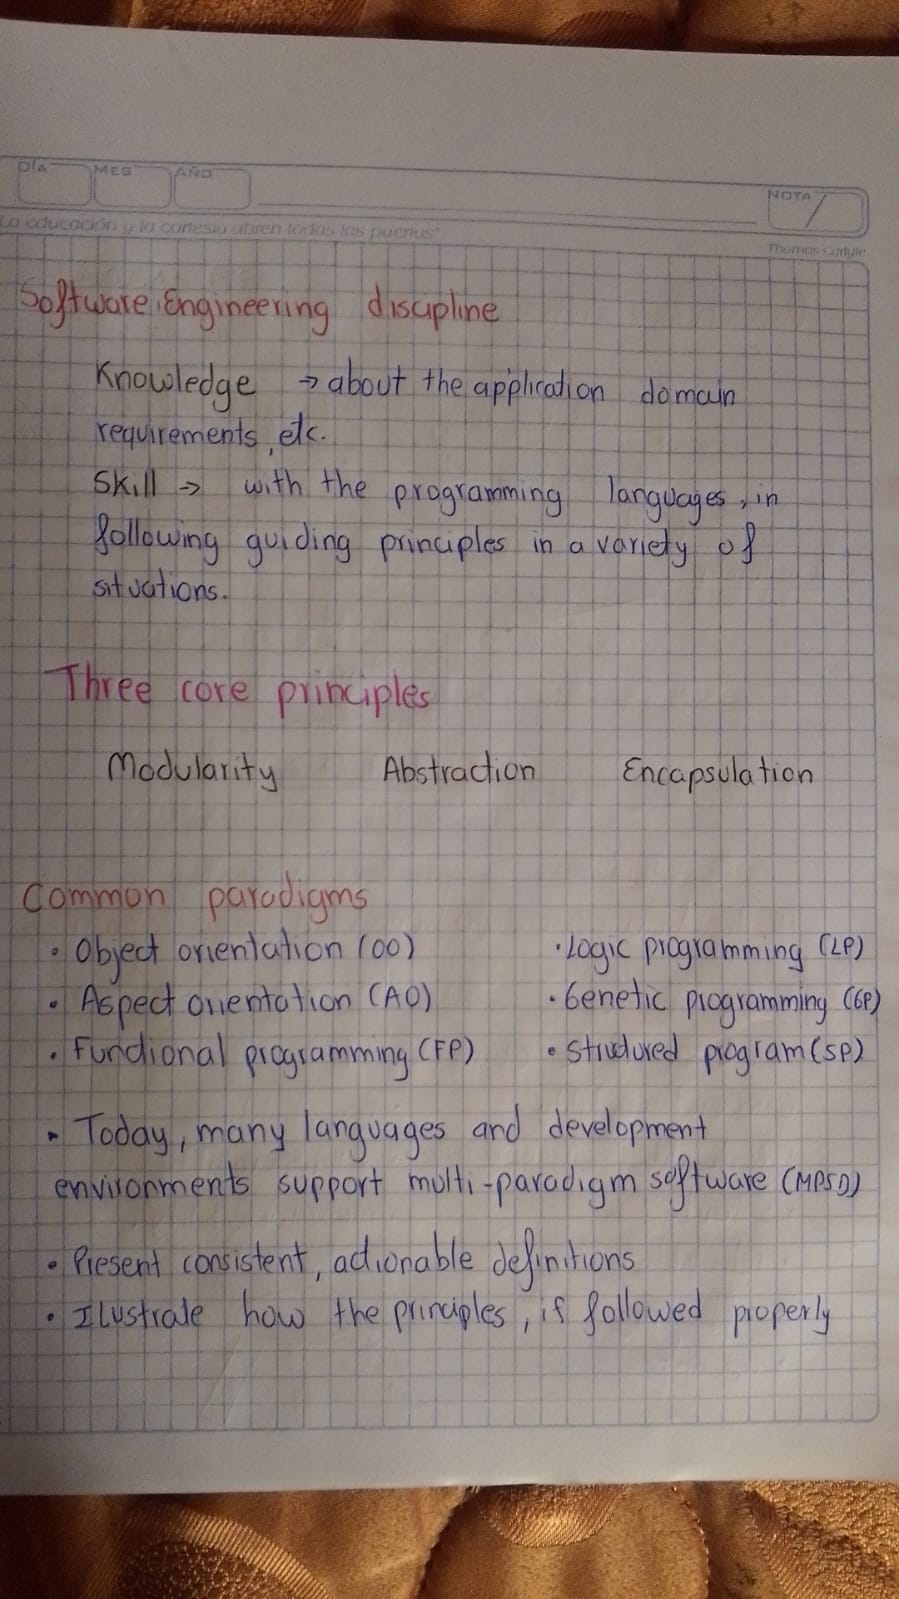 DÍA MES AÑO
NOTA
"La educación y la cortesía abren todas las puertas"
Thomas Carlyle
Software Engineering discipline
Knowledge → about the application domain
requirements, etc.
Skill → with the programming languages, in
following guiding principles in a variety of
situations.
Three core principles
Modularity Abstraction Encapsulation
Common paradigms
• Object orientation (OO) • Logic programming (LP)
• Aspect orientation (AO) • Genetic programming (GP)
• Functional programming (FP) • Structured program (SP)
• Today, many languages and development
environments support multi-paradigm software (MPSD)
• Present consistent, actionable definitions
• Ilustrate how the principles, if followed properly